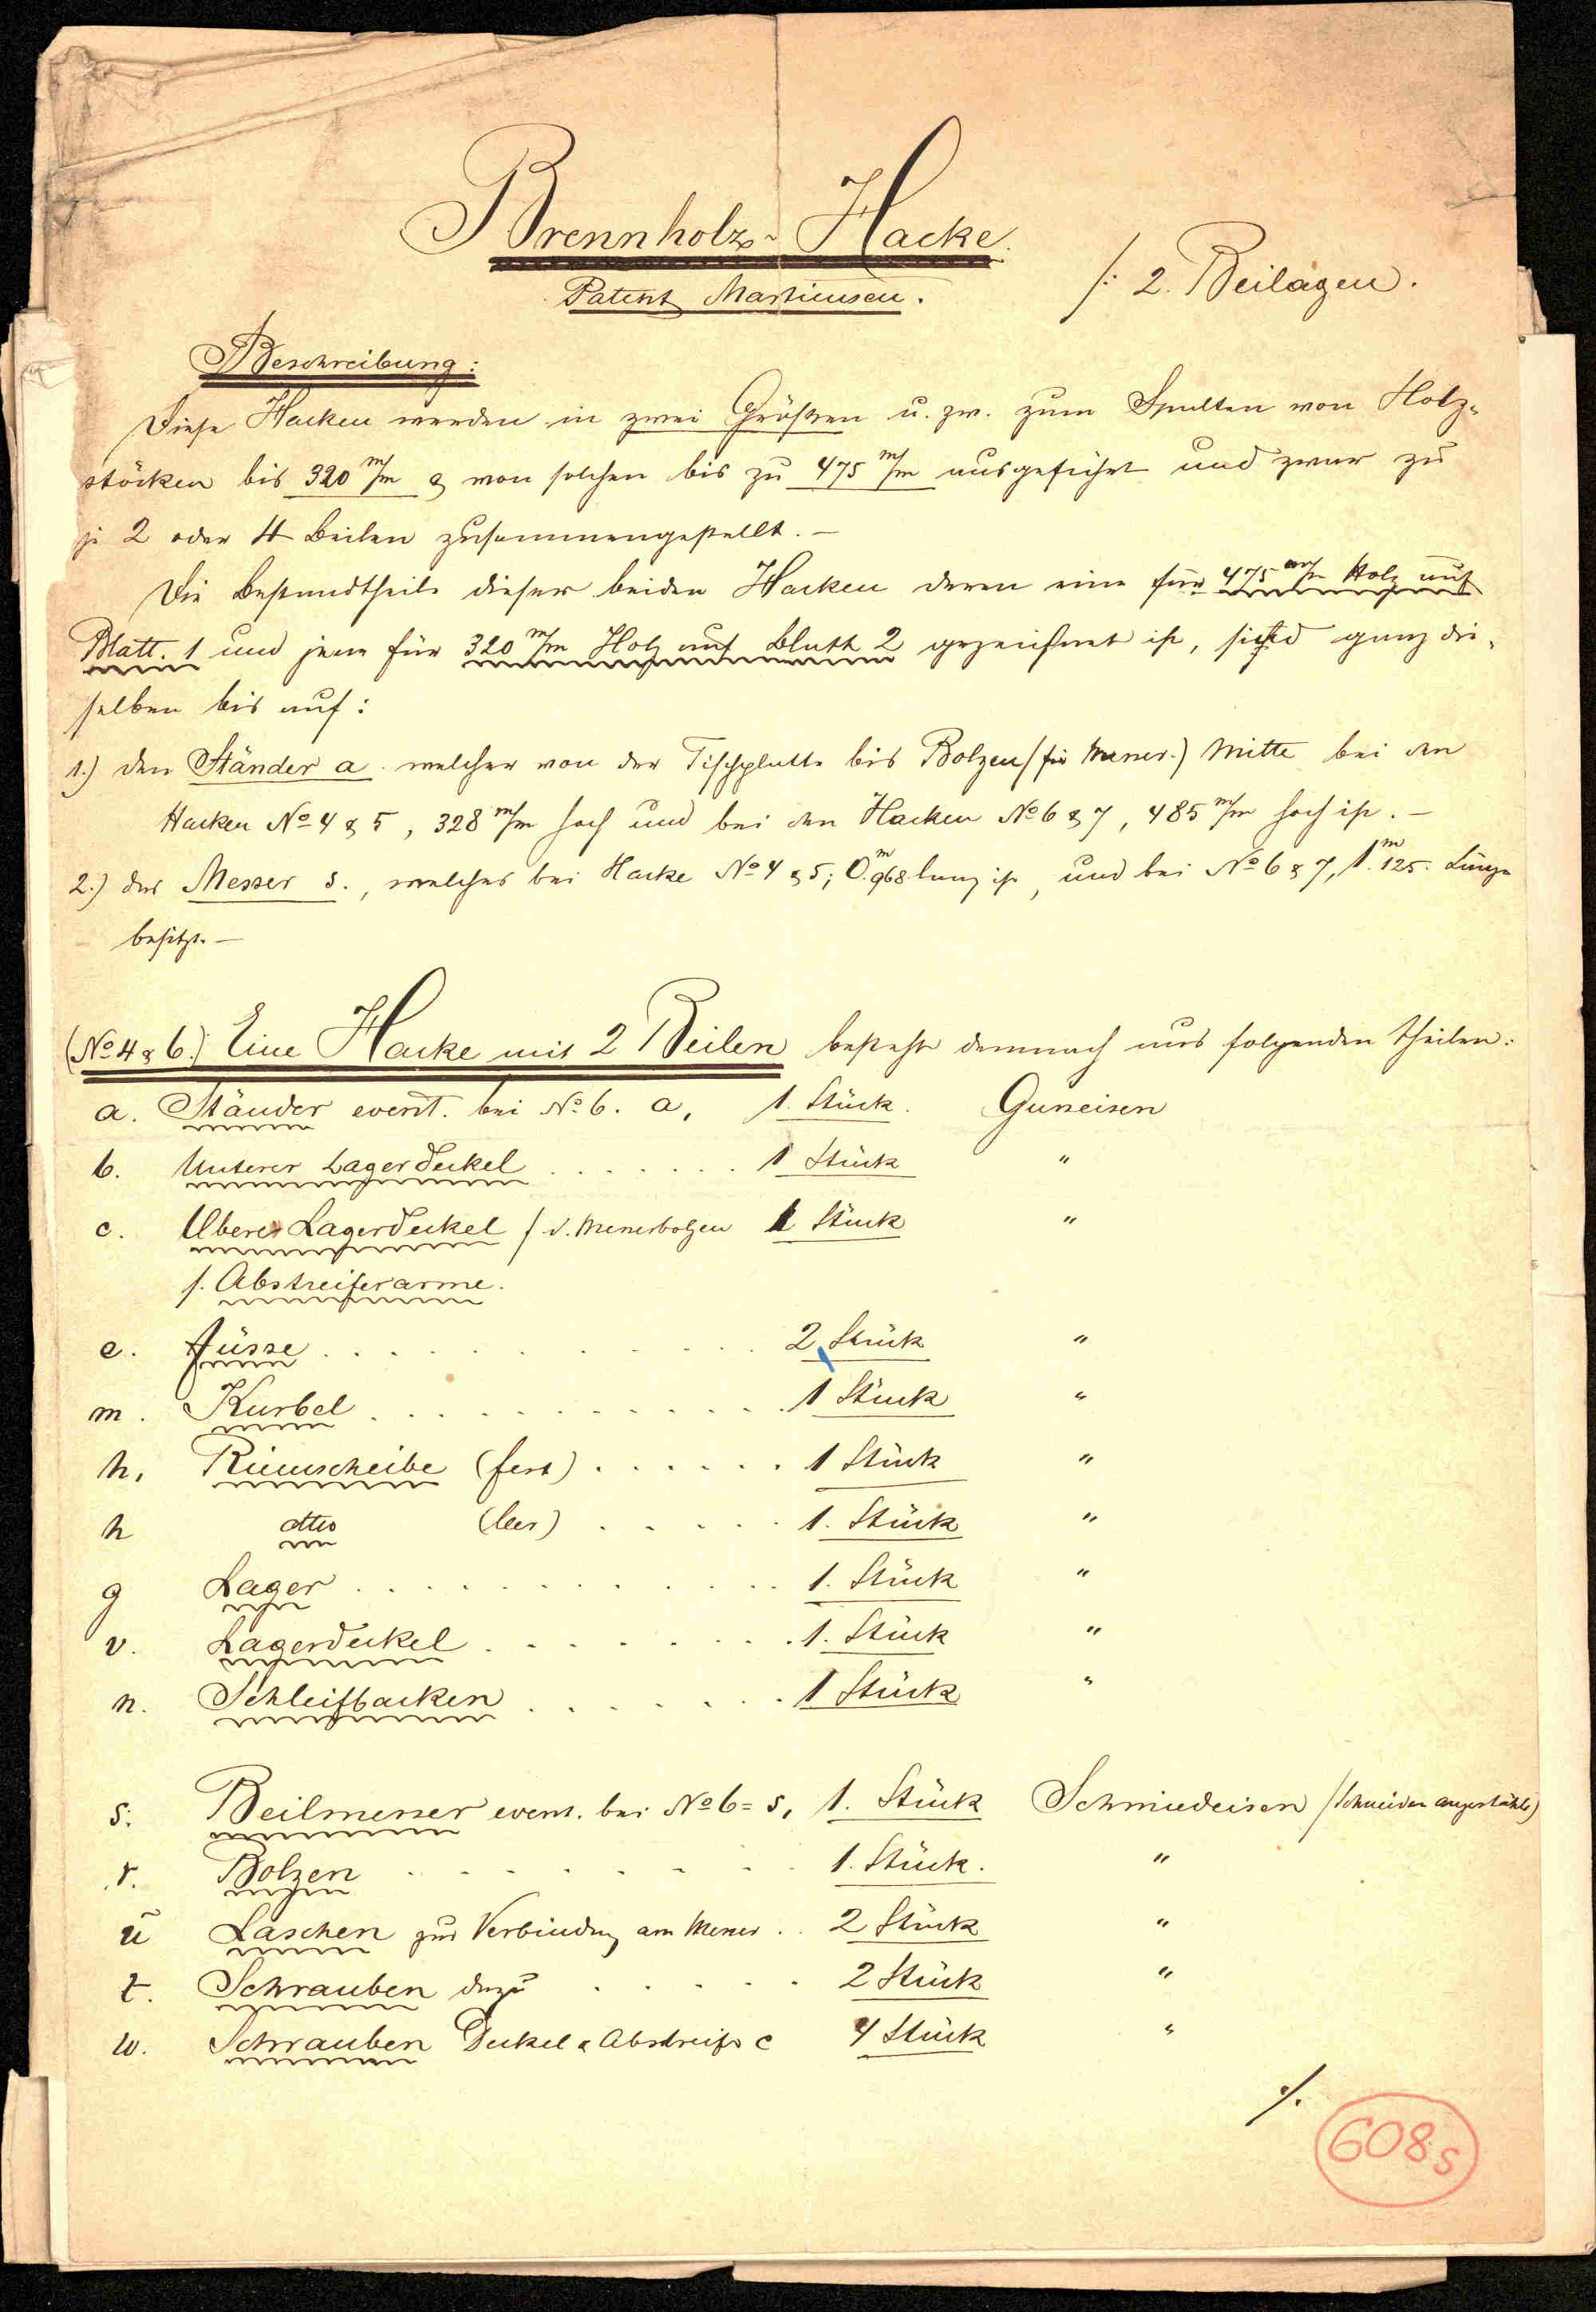 Brennholz-Hacke.
Patent Martiensen.
/: 2. Beilagen.
Beschreibung:
Diese Hacken werden in zwei Größen u. zw. zum Spalten von Holz-
stöcken bis 320 m/m & von solchen bis zu 475 m/m ausgeführt und zwar zu
je 2 oder 4 Beilen zusammengestellt. —
Die Bestandtheile dieser beiden Hacken deren eine für 475 m/m Holz auf
Blatt. 1 und jene für 320 m/m Holz auf Blatt 2 gezeichnet ist, sind ganz die-
selben bis auf:
1.) den Ständer a. welcher von der Tischplatte bis Bolzen (für Messer.) Mitte bei den
Hacken No 4 & 5, 328 m/m hoch und bei den Hacken No 6 & 7, 485 m/m hoch ist. —
2.) das Messer s., welches bei Hacke No 4 & 5; 0.m968 lang ist, und bei No 6 & 7, 1.m125. Länge
besitzt. —
(No 4 & 6.) Eine Hacke mit 2 Beilen besteht demnach aus folgenden Theilen:
a. Ständer event. bei No 6. a, 1. Stück. Gusseisen
b. Unterer Lagerdeckel . . . . . . . 1 Stück "
c. Oberer Lagerdeckel / d. Messerbolzen 1 Stück "
/. Abstreiferarme.
e. Füsse . . . . . . . . . 2 Stück "
m. Kurbel . . . . . . . . . 1 Stück "
h, Riemscheibe (fest) . . . . . . 1 Stück "
h dtto (leer) . . . . . 1. Stück "
g Lager . . . . . . . . . 1. Stück "
v. Lagerdeckel . . . . . . . . 1. Stück "
n. Schleifbacken . . . . . . . 1 Stück "
s. Beilmesser event. bei No 6 = s, 1. Stück Schmiedeisen /Schneiden angestählt)
r. Bolzen . . . . . . . . 1. Stück. "
u Laschen zur Verbindung am Messer . . 2 Stück "
t. Schrauben dazu . . . . . 2 Stück "
w. Schrauben Deckel & Abstreifer c 4 Stück "
./.
608 s